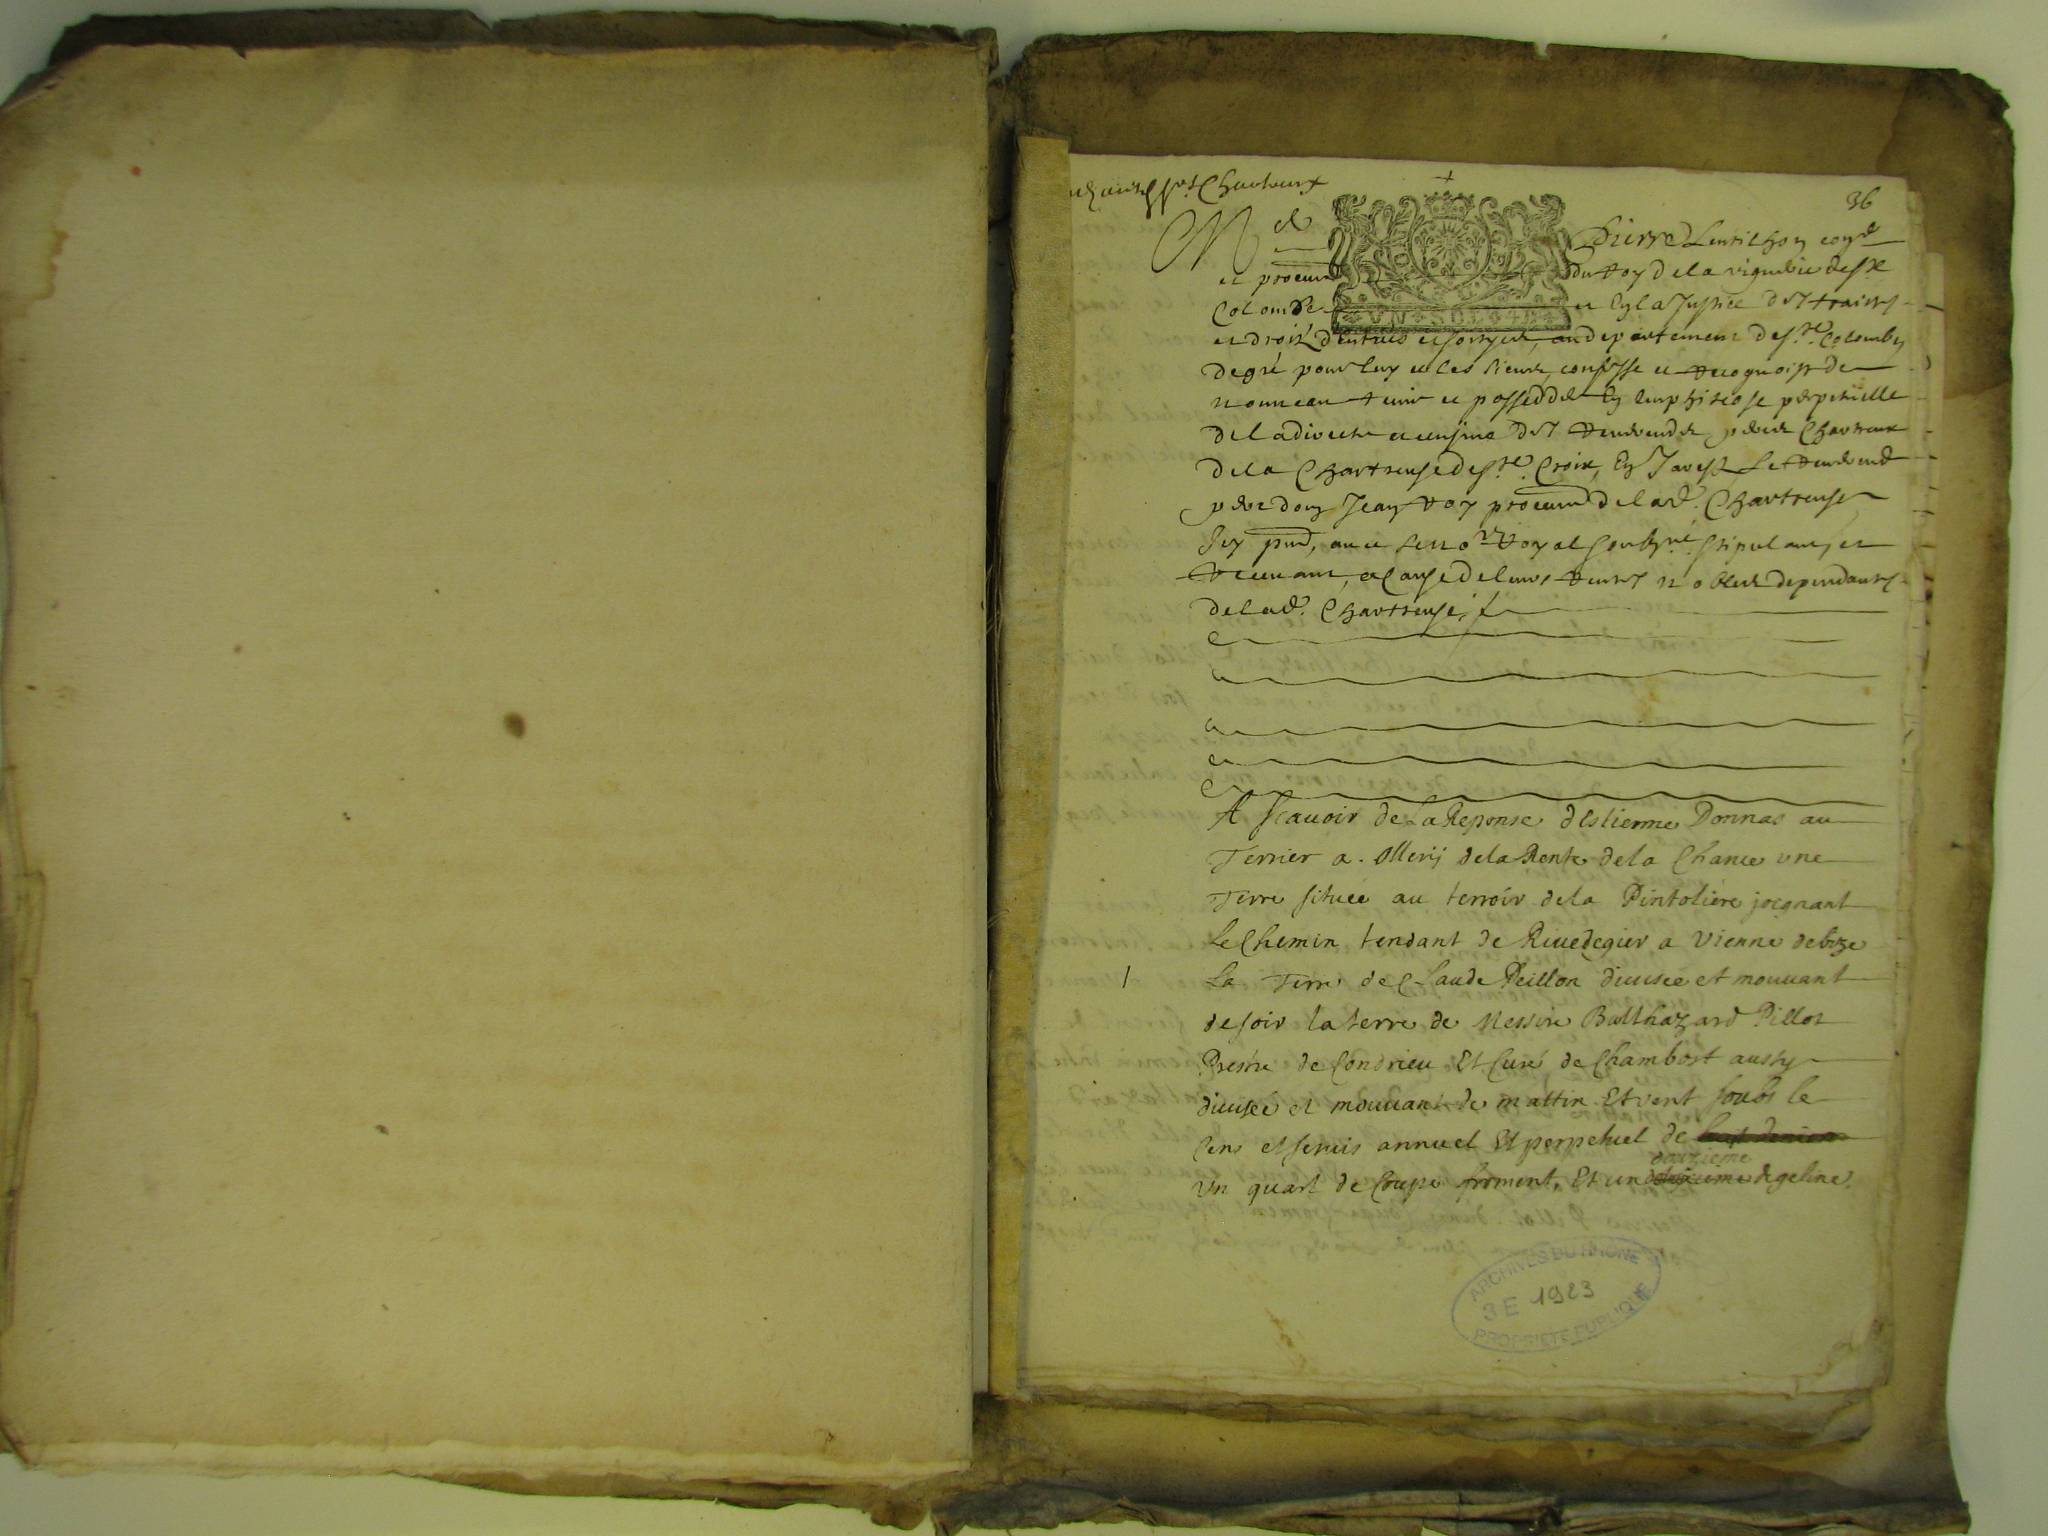 36
Chartreux
Me Pierre Lentilhon con.er
et procureur du Roy de la viguerie de Ste
Colombe et en la Justice des traittes
et droitz d'entrées et sortyes, au departement de Ste. Colombe
de gré pour luy et les siens, confesse et recognoist de
nouveau tenir et possedder en emphiteose perpetuelle
de la directe et censive des Reverends peres Chartreux
de la Chartreuse de Ste. Croix, en Jarest, Le Reverend
pere dom Jean Roy procureur de lad. Chartreuse
Icy pnt, avec le no.re Royal soubsigné stipulant, et
recevant, a Cause de leurs rentes nobles dependants
de lad. Chartreuse,
A scauoir de La Reponse d'Estienne Donnas au
Terrier a. Ollerij de la Rente de la Chance vne
Terre située au terroir de la Pintoliere joignant
Le Chemin tendant de Riuedegier a Vienne de bize
La Terre de Claude Peillon diuisée et mouuant
1
de soir la terre de Messire Balthazard Pillot
Prestre de Condrieu Et Curé de Chambost aussy
diuisée et mouuant de mattin Et vent soubs le
Cens et seruis annuel Et perpetuel de
douzieme
vn quart de Coupe froment, Et un de geline.
ARCHIVES DU RHONE
3E 1923
PROPRIETE PUBLIQUE